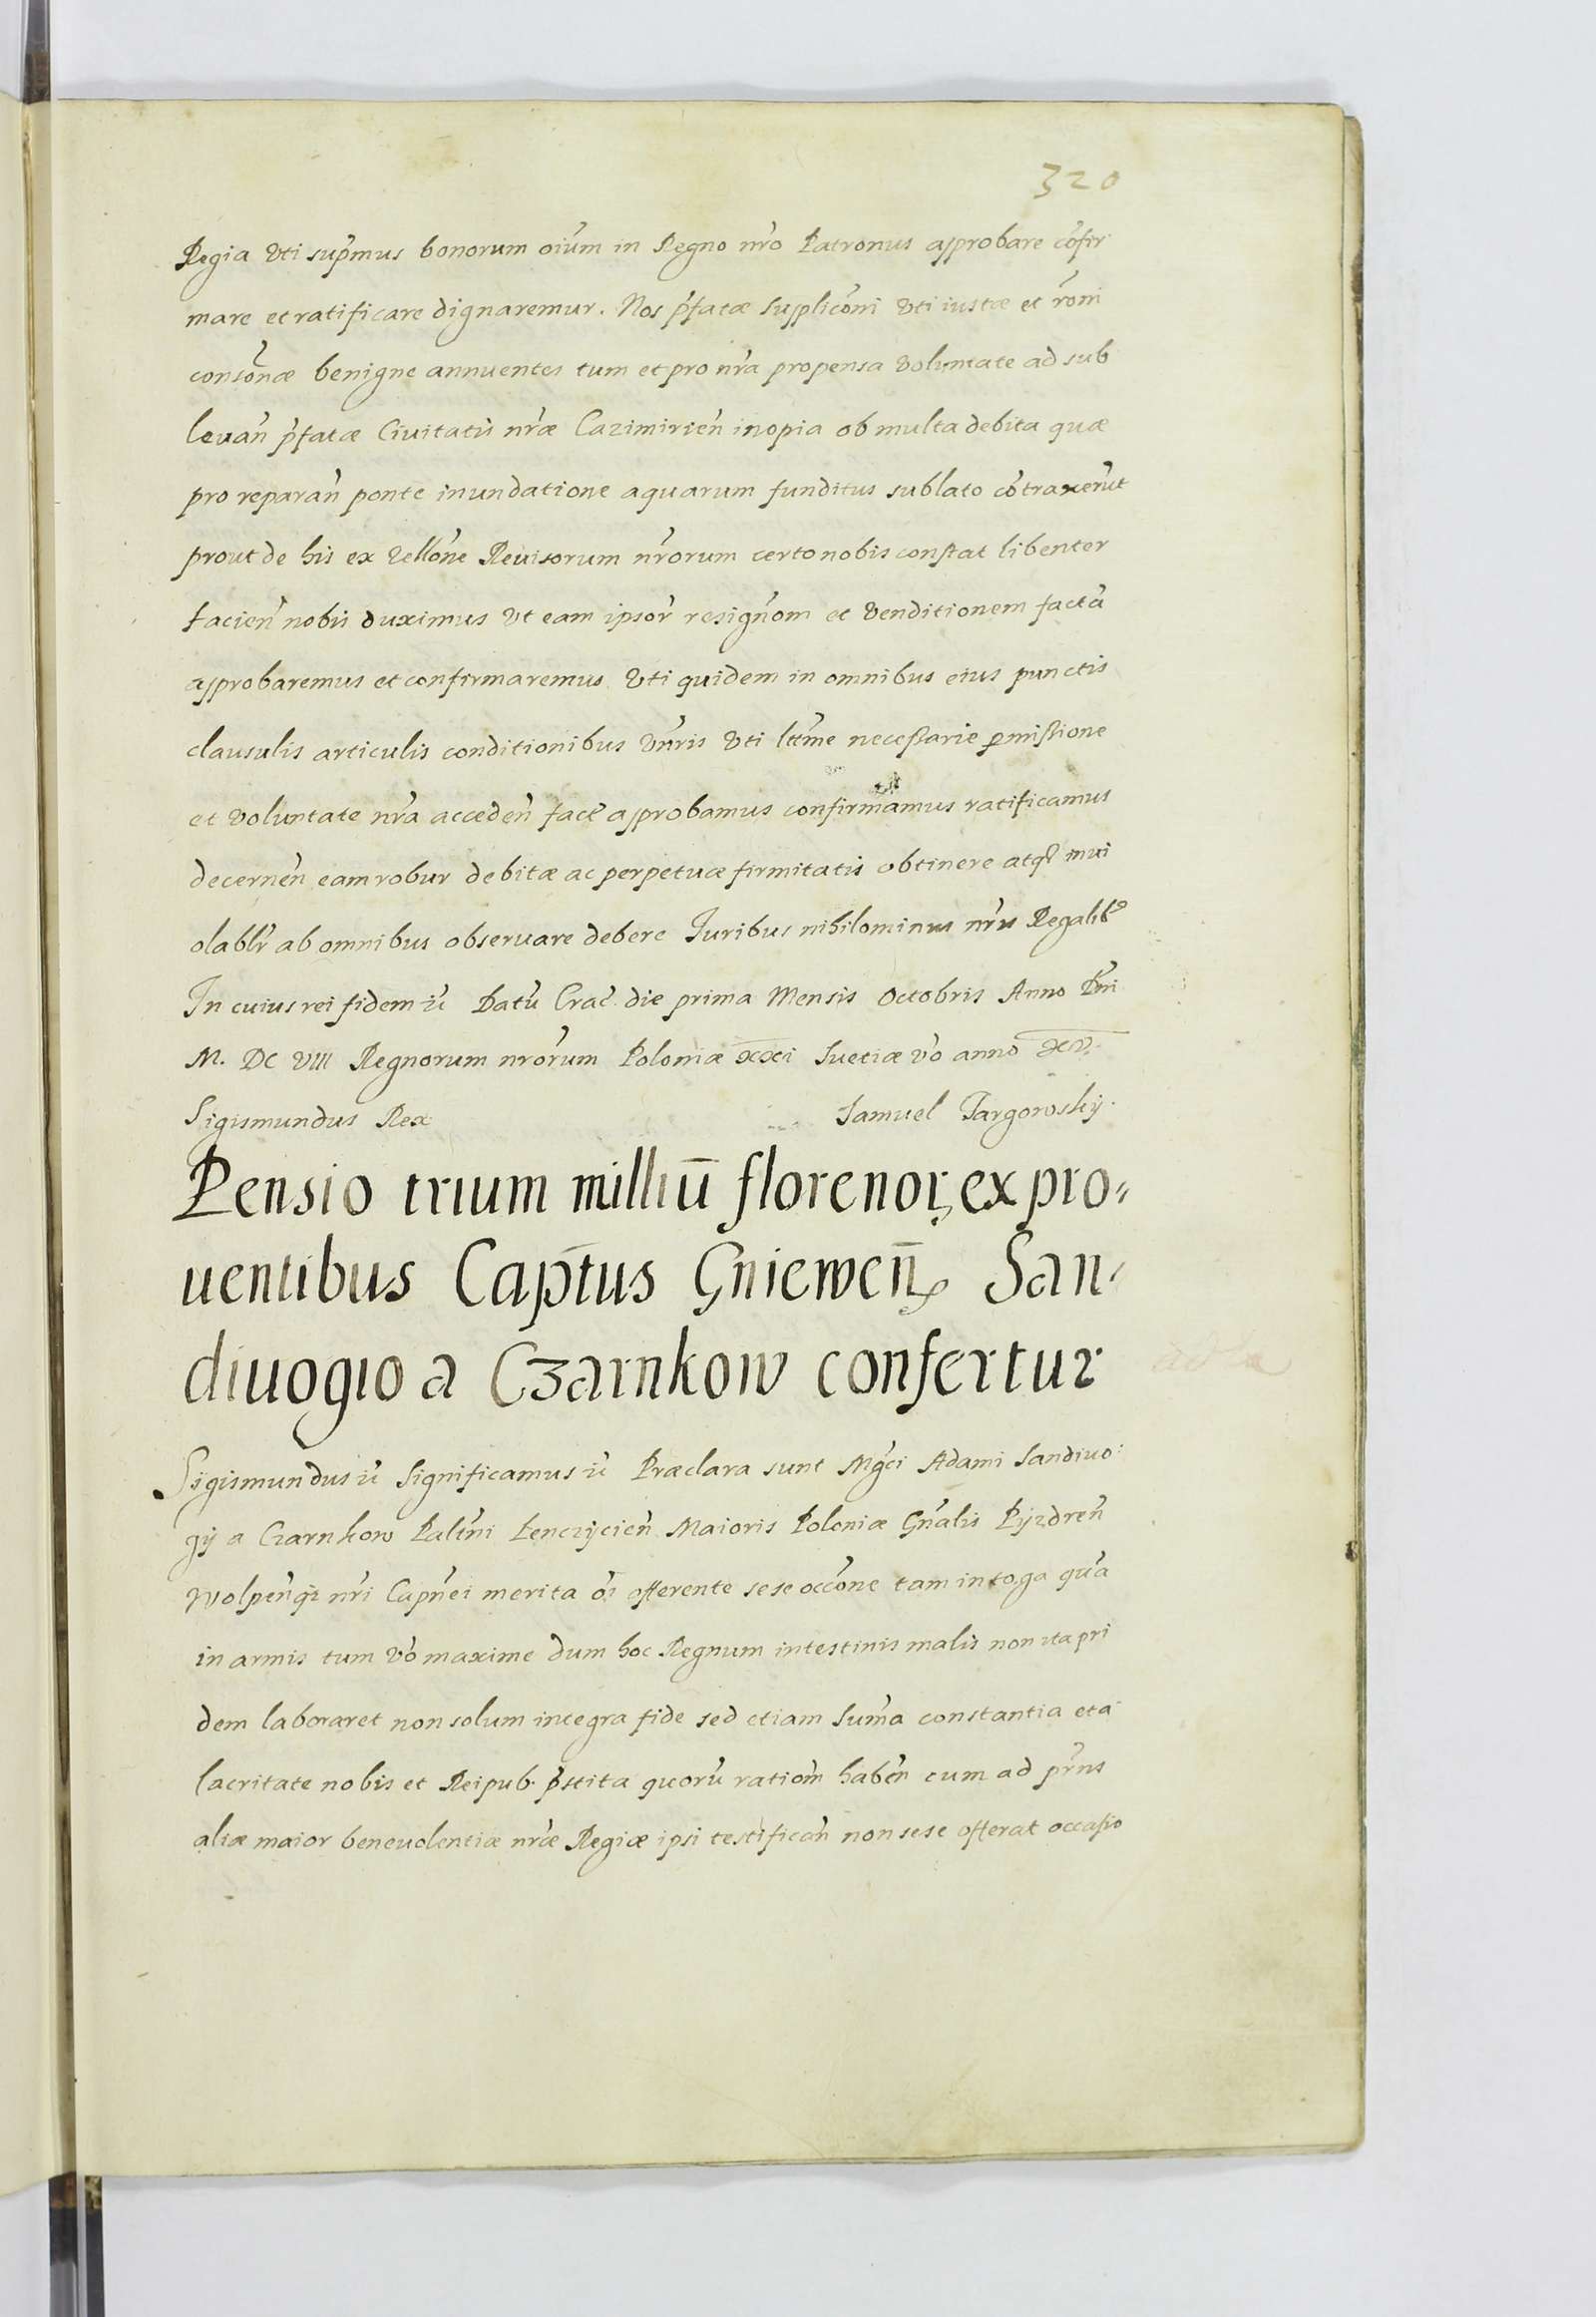 320
Regia Vti sup̃mus bonorum oĩum in Regno nr̃o Patronus approbare cõfir
mare et ratificare dignaremur. Nos p̃fatæ supplicõni Vti iustæ et rõni
consonæ benigne annuentes tum et pro nr̃a propensa voluntate ad sub
leuañ p̃fatæ Ciuitatis nr̃æ Cazimirieñ inopia ob multa debita quæ
pro reparañ ponte inundatione aquarum funditus sublato cõtraxerũt
prout de his ex rellõne Reuisorum nr̃orum certo nobis constat libenter
facieñ nobis duximus Vt eam ipsor̃ resignõm et Venditionem factã
approbaremus et confirmaremus Vti quidem in omnibus eius punctis
clausulis articulis conditionibus Vñris Vti lttm̃e necessarie permissione
et voluntate nr̃a accedeñ fact̃ approbamus confirmamus ratificamus
decerneñ eam robur debitæ ac perpetuæ firmitatis obtinere atq̃ inui
olablr̃ ab omnibus obseruare debere Iuribus nihilominus nr̃is Regalib9
In cuius rei fidem ec̃ Datũ Crac̃ die prima Mensis Octobris Anno Dñi
M. DC VIII Regnorum nr̃orum Poloniæ xxi Suetiæ võ anno xv.
Sigismundus Rex Samuel Targowskij.
Pensio trium milliũ florenor, ex pro-
uentibus Cap̃tus Gnieweñ San-
diuogio a Czarnkow confertur
Sigismundus ec̃ Significamus ec̃ Præclara sunt Mg̃ci Adami Sandiuo
gij a Czarnkow Palt̃ni Lenczijcieñ Maioris Poloniæ Gñalis Pijzdreñ
Wolpeñq̃ nr̃i Capñei merita õi offerente sese occõne tam in toga quã
in armis tum võ maxime dum hoc Regnum intestinis malis non ita pri
dem laboraret non solum integra fide sed etiam sum̃a constantia et a
lacritate nobis et Reipub. p̃stita quorũ ratiom̃ habeñ cum ad pr̃ns
aliæ maior beneuolentiæ nr̃æ Regiæ ipsi testificañ non sese offerat occasio